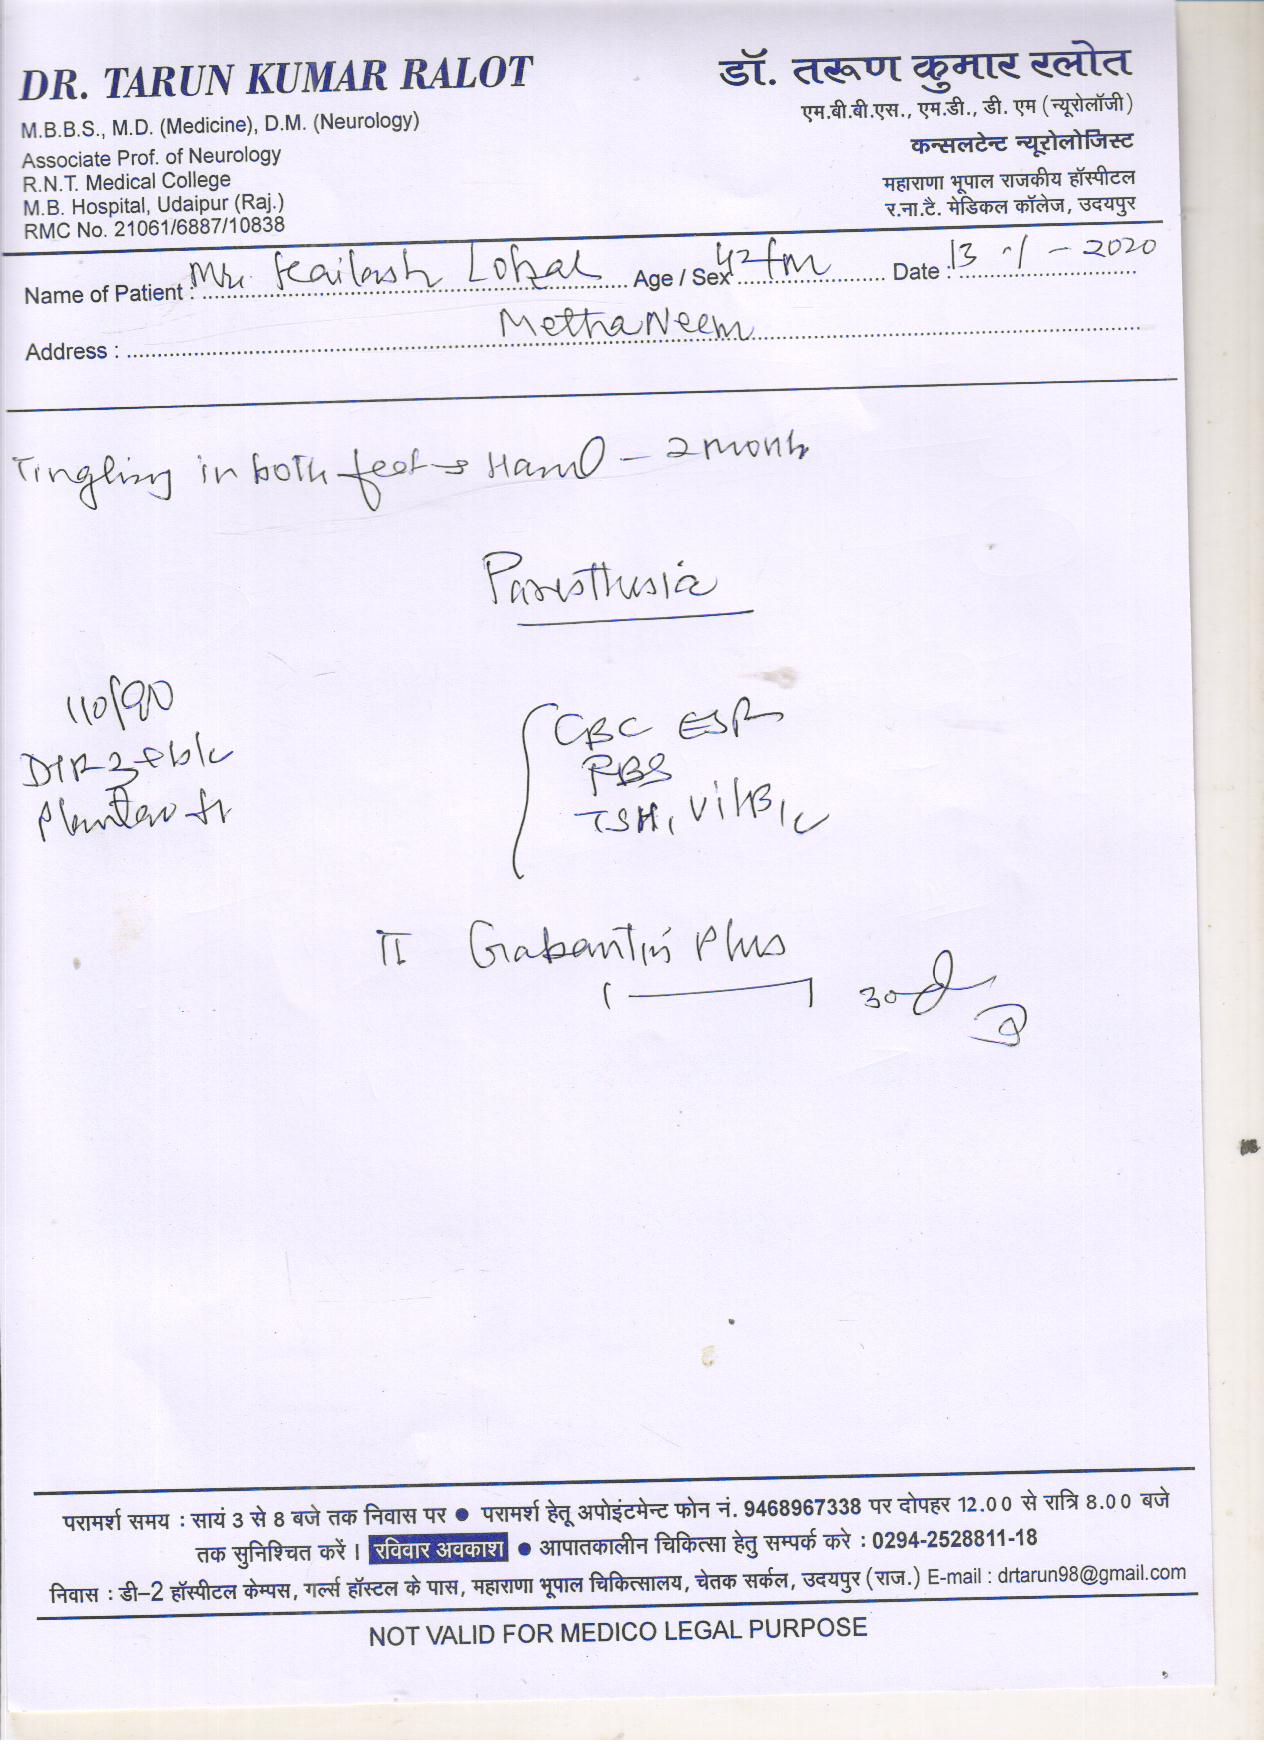 DR. TARUN KUMAR RALOT
M.B.B.S., M.D. (Medicine), D.M. (Neurology)
Associate Prof. of Neurology
R.N.T. Medical College
M.B. Hospital, Udaipur (Raj.)
RMC No. 21061/6887/10838
डॉ. तरूण कुमार रलोत
एम.बी.बी.एस., एम.डी., डी. एम (न्यूरोलॉजी)
कन्सलटेन्ट न्यूरोलोजिस्ट
महाराणा भूपाल राजकीय हॉस्पीटल
र.ना.टै. मेडिकल कॉलेज, उदयपुर
Name of Patient : Mr. Kailash Age / Sex 42 / m Date : 13 - 1 - 2020
Address :
Tingling in both feet → Hand - 2 month
Paresthesia
110/90
CBC ESR
RBS
TSH, Vit B12
Plantar
Gabantin Plus
1 1 30 d
परामर्श समय : सायं 3 से 8 बजे तक निवास पर ● परामर्श हेतू अपोइंटमेन्ट फोन नं. 9468967338 पर दोपहर 12.00 से रात्रि 8.00 बजे
तक सुनिश्चित करें । रविवार अवकाश ● आपातकालीन चिकित्सा हेतु सम्पर्क करे : 0294-2528811-18
निवास : डी–2 हॉस्पीटल केम्पस, गर्ल्स हॉस्टल के पास, महाराणा भूपाल चिकित्सालय, चेतक सर्कल, उदयपुर (राज.) E-mail : drtarun98@gmail.com
NOT VALID FOR MEDICO LEGAL PURPOSE